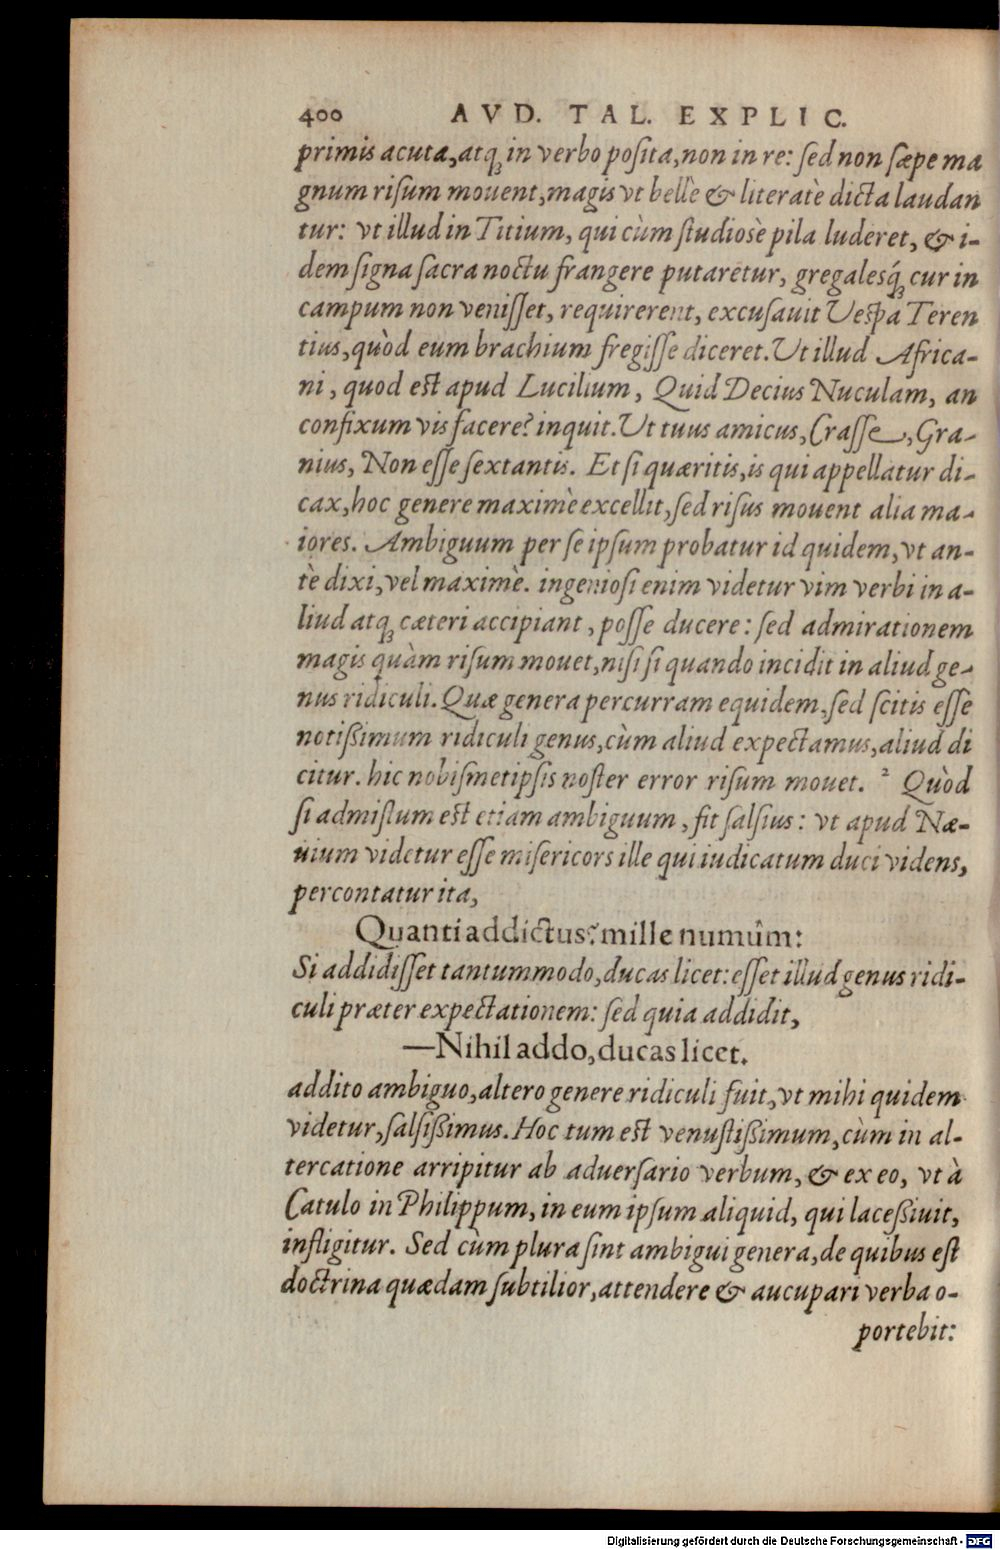 400 AVD. TAL. EXPLIC.
primis acuta, atq́; in verbo posita, non in re: sed non sæpe ma
gnum risum mouent, magis vt bellè & literatè dicta laudan
tur: vt illud in Titium, qui cùm studiosè pila luderet, & i-
dem signa sacra noctu frangere putaretur, gregalesq́; cur in
campum non venisset, requirerent, excusauit Vespa Teren
tius, quòd eum brachium fregisse diceret. Vt illud Africa-
ni, quod est apud Lucilium, Quid Decius Nuculam, an
confixum vis facere? inquit. Vt tuus amicus, Crasse, Gra-
nius, Non esse sextantis. Et si quæritis, is qui appellatur di-
cax, hoc genere maximè excellit, sed risus mouent alia ma-
iores. Ambiguum per se ipsum probatur id quidem, vt an-
tè dixi, vel maximè. ingeniosi enim videtur vim verbi in a-
liud atq; cæteri accipiant, posse ducere: sed admirationem
magis quàm risum mouet, nisi si quando incidit in aliud ge-
nus ridiculi. Quæ genera percurram equidem, sed scitis esse
notißimum ridiculi genus, cùm aliud expectamus, aliud di
citur. hic nobismetipsis noster error risum mouet. ² Quòd
si admistum est etiam ambiguum, fit salsius: vt apud Næ-
uium videtur esse misericors ille qui iudicatum duci videns,
percontatur ita,
Quanti addictus? mille numûm:
Si addidisset tantummodo, ducas licet: esset illud genus ridi-
culi præter expectationem: sed quia addidit,
—Nihil addo, ducas licet.
addito ambiguo, altero genere ridiculi fuit, vt mihi quidem
videtur, salsißimus. Hoc tum est venustißimum, cùm in al-
tercatione arripitur ab aduersario verbum, & ex eo, vt à
Catulo in Philippum, in eum ipsum aliquid, qui laceßiuit,
infligitur. Sed cùm plura sint ambigui genera, de quibus est
doctrina quædam subtilior, attendere & aucupari verba o-
portebit:
Digitalisierung gefördert durch die Deutsche Forschungsgemeinschaft - DFG